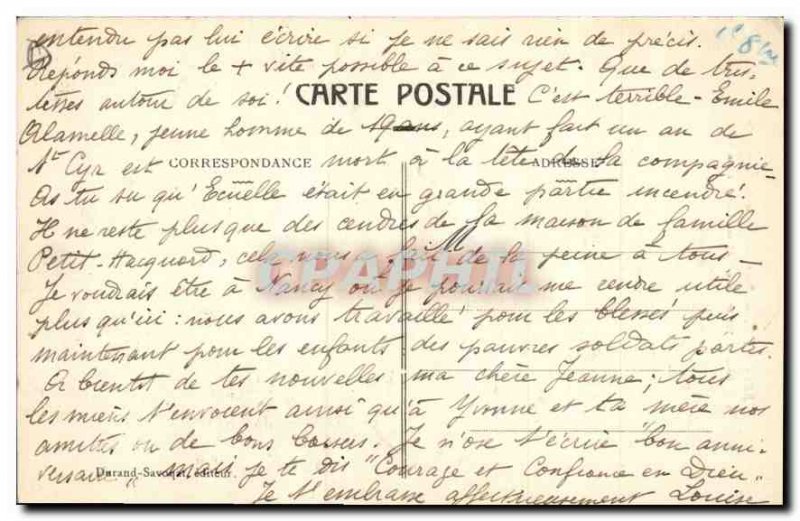 entendu pas lui écrire si je ne sais rien de précis.
Réponds moi le + vite possible à ce sujet. Que de tris-
tesses autour de soi! CARTE POSTALE C'est terrible - Emile
Alamelle, jeune homme de 19 ans, ayant fait un an de
St Cyr est CORRESPONDANCE mort à la tête ADRESSE de sa compagnie -
As tu su qu'Ecuelle était en grande partie incendié!
Il ne reste plus que des cendres de la maison de famille
Petit-Hacquard, cela nous a fait M de la peine à tous -
CPAPHIL
Je voudrais être à Nancy où je pourrais me rendre utile
plus qu'ici: nous avons travaillé pour les blessés puis
maintenant pour les enfants des pauvres soldats partis.
A bientôt de tes nouvelles ma chère Jeanne; tous
les miens t'envoient ainsi qu'à Yvonne et ta mère nos
amitiés ou de bons baisers. Je n'ose t'écrire "bon anni-
versaire" mais je te dis "Courage et Confiance en Dieu"
Durand-Savoyat, éditeur.
Je t'embrasse affectueusement Louise